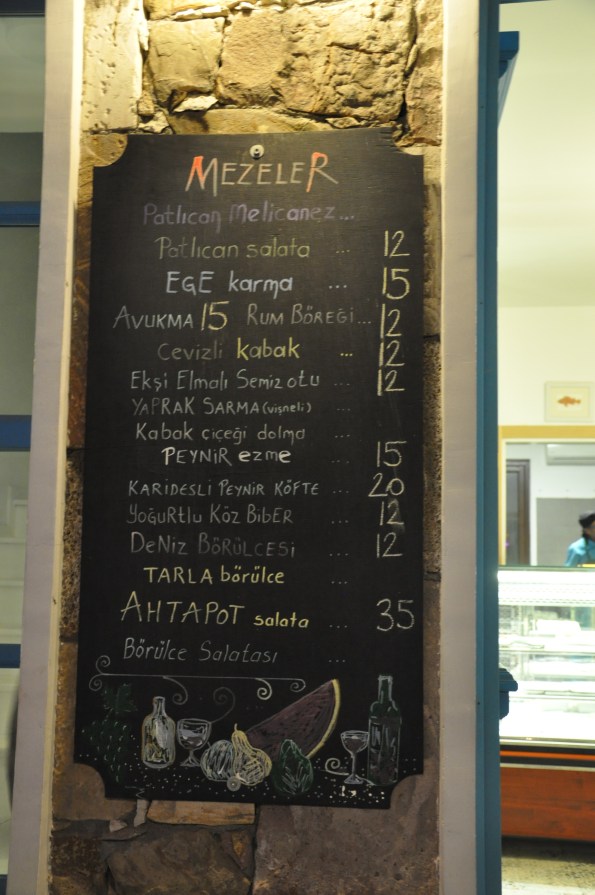 MEZELER
Patlıcan Melicanez...
Patlıcan salata ... 12
EGE karma ... 15
AVUKMA 15 RUM BÖREĞİ... 12
Cevizli kabak ... 12
Ekşi Elmalı Semizotu ... 12
YAPRAK SARMA (vişneli) ...
Kabak çiçeği dolma ...
PEYNİR ezme ... 15
KARİDESLİ PEYNİR KÖFTE ... 20
YOĞURTLU KÖZ BİBER ... 12
DENİZ BÖRÜLCESİ ... 12
TARLA börülce ...
AHTAPOT salata ... 35
Börülce Salatası ...